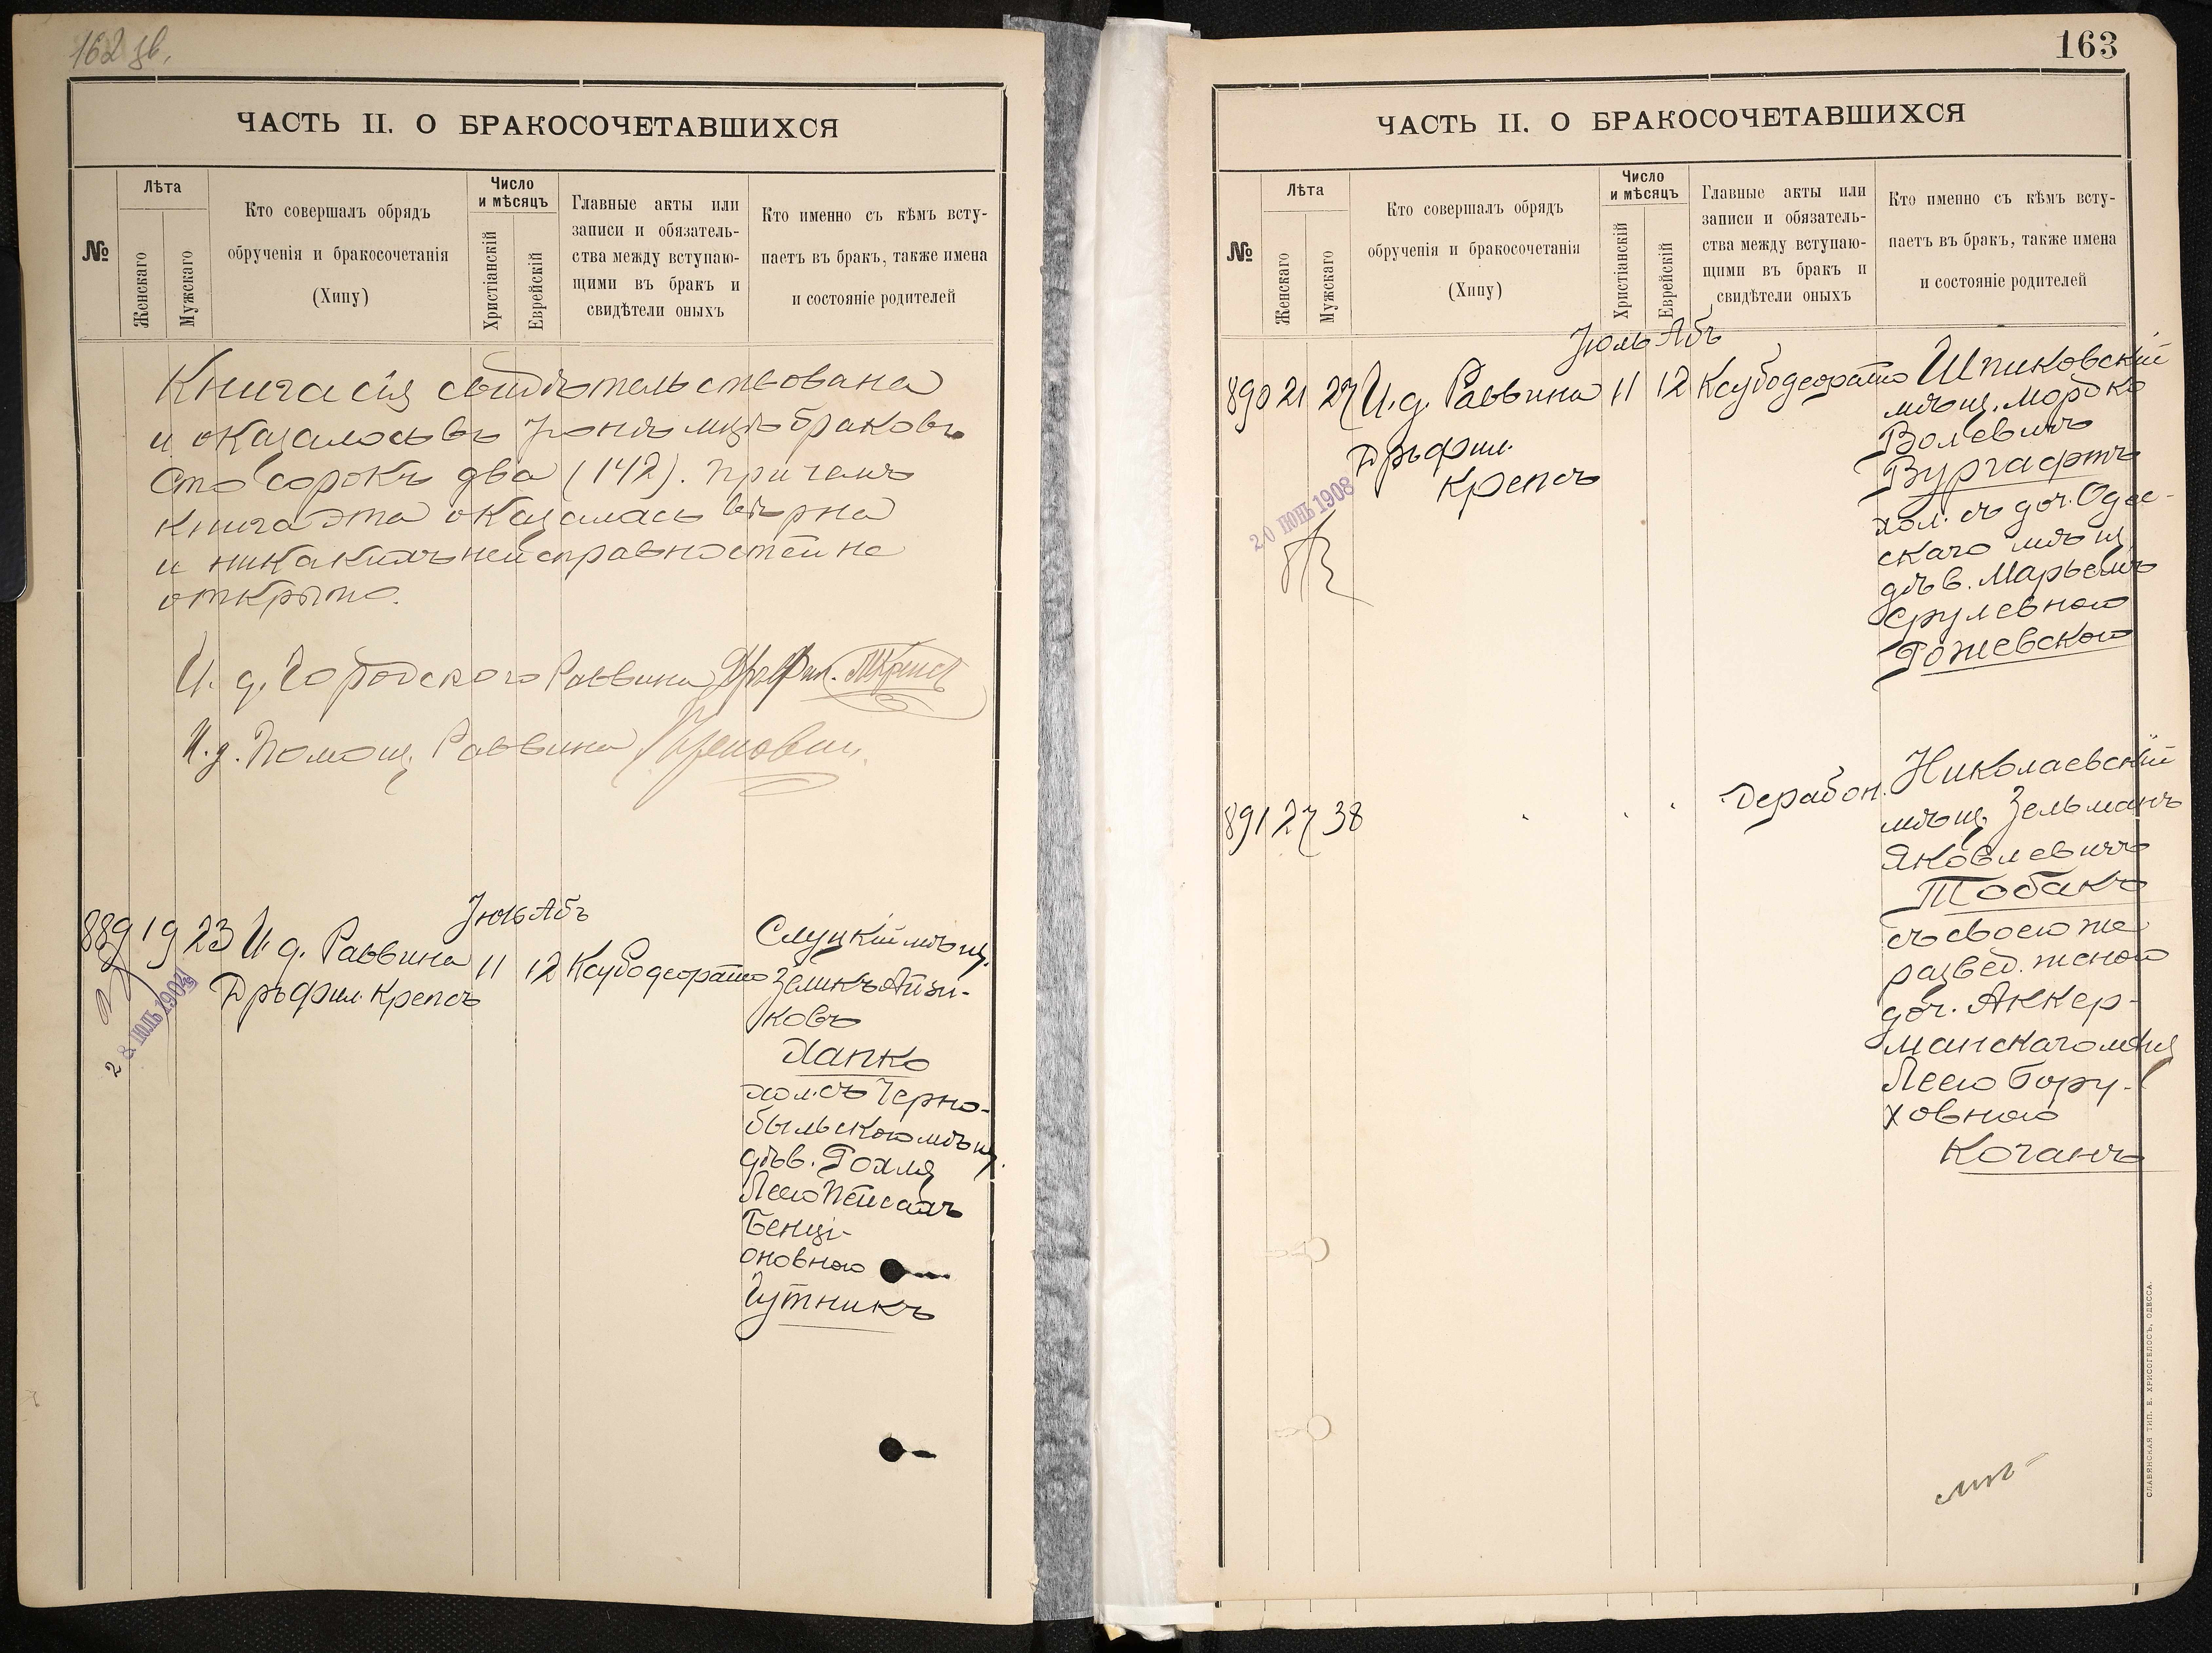 162 зв.
ЧАСТЬ II. О БРАКОСОЧЕТАВШИХСЯ
№
Лѣта
Женскаго
Мужскаго
Кто совершалъ обрядъ
обрученія и бракосочетанія
(Хипу)
Число
и мѣсяцъ
Христіанскій
Еврейскій
Главные акты или
записи и обязатель-
ства между вступаю-
щими въ бракъ и
свидѣтели оныхъ
Кто именно съ кѣмъ всту-
паетъ въ бракъ, также имена
и состояніе родителей
Книга сія свидѣтельствована
и оказалось въ Іюнѣ мцѣ браковъ
сто сорокъ два (142). Причемъ
книга эта оказалась вѣрна
и никакихъ неисправностей не
открыто.
И. д. Городского Раввина Дръ Фил. МКрепсъ
И. д. Помощ. Раввина
Іюль Абъ
889 19 23 И д. Раввина 11 12 Ксубодеорайто
Дръ Фил. Крепсъ
28 ІЮЛЬ 1904
Слуцкій мѣщ.
Зеликъ Айзи-
ковъ
Хапко
хол. съ Черно-
быльскою мѣщ.
дѣв. Рохля
Леею Пейсахъ
Бенці-
оновною
Гутникъ
163
ЧАСТЬ II. О БРАКОСОЧЕТАВШИХСЯ
№
Лѣта
Женскаго
Мужскаго
Кто совершалъ обрядъ
обрученія и бракосочетанія
(Хипу)
Число
и мѣсяцъ
Христіанскій
Еврейскій
Главные акты или
записи и обязатель-
ства между вступаю-
щими въ бракъ и
свидѣтели оныхъ
Кто именно съ кѣмъ всту-
паетъ въ бракъ, также имена
и состояніе родителей
Іюль Абъ
890 21 27 И. д. Раввина 11 12 Ксубодеорайто
Дръ Фил.
Крепсъ
20 ІЮНЬ 1908
Шпиковскій
мѣщ. Мордко
Волевичъ
Вургафтъ
хол. съ доч. Одес-
скаго мѣщ.
дѣв. Марьемъ
Срулевною
Рожевскою
891 27 38 Дерабон.
Николаевскій
мѣщ. Зельманъ
Яковлевичъ
Тобакъ
съ своею же
развед. женою
доч. Аккер-
манскаго мѣщ
Леею Бору-
ховною
Коганъ
СЛАВЯНСКАЯ ТИП. Е. ХРИСОГЕЛОСЪ, ОДЕССА.